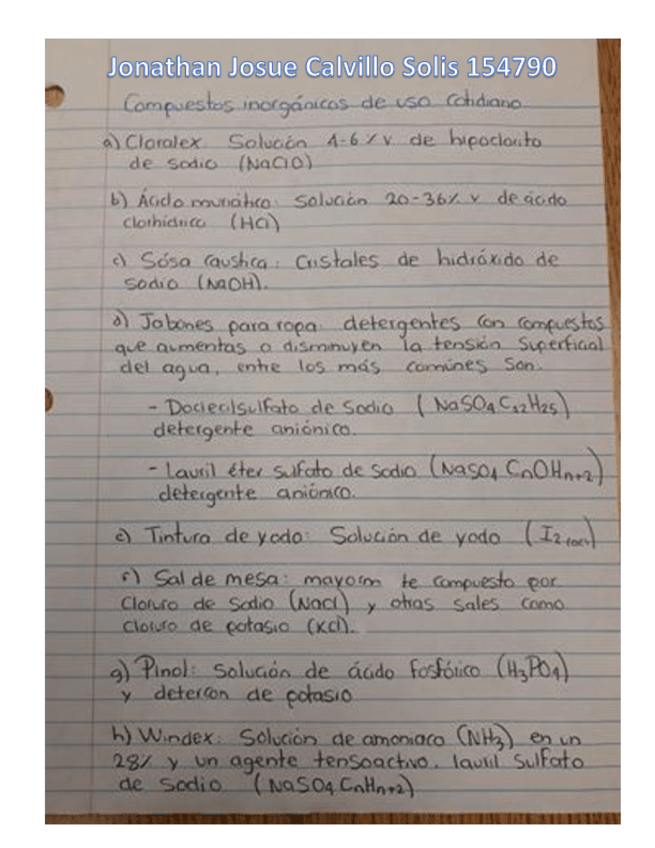 Jonathan Josue Calvillo Solis 154790
Compuestos inorgánicos de uso cotidiano
a) Cloralex. Solución 4-6%v de hipoclorito
de sodio (NaClO)
b) Ácido muriático: Solución 20-36% v de ácido
clorhídrico (HCl)
c) Sósa caustica: Cristales de hidróxido de
sodio (NaOH).
d) Jabones para ropa: detergentes con compuestos
que aumentas o disminuyen la tensión superficial
del agua, entre los más comúnes son:
- Dociecilsulfato de Sodio (NaSO4C12H25)
detergente aniónico.
- Lauril éter sulfato de sodio (NaSO4 CnOHn+2)
detergente aniónico.
e) Tintura de yodo: Solución de yodo (I2(oc))
f) Sal de mesa: mayorm te compuesto por
Cloruro de Sodio (NaCl) y otras sales como
cloruro de potasio (KCl).
g) Pinol: Solución de ácido fosfórico (H3PO4)
y detercon de potasio
h) Windex: Solución de amoniaco (NH3) en un
28% y un agente tensoactivo. lauril sulfato
de Sodio (NaSO4 CnHn+2)